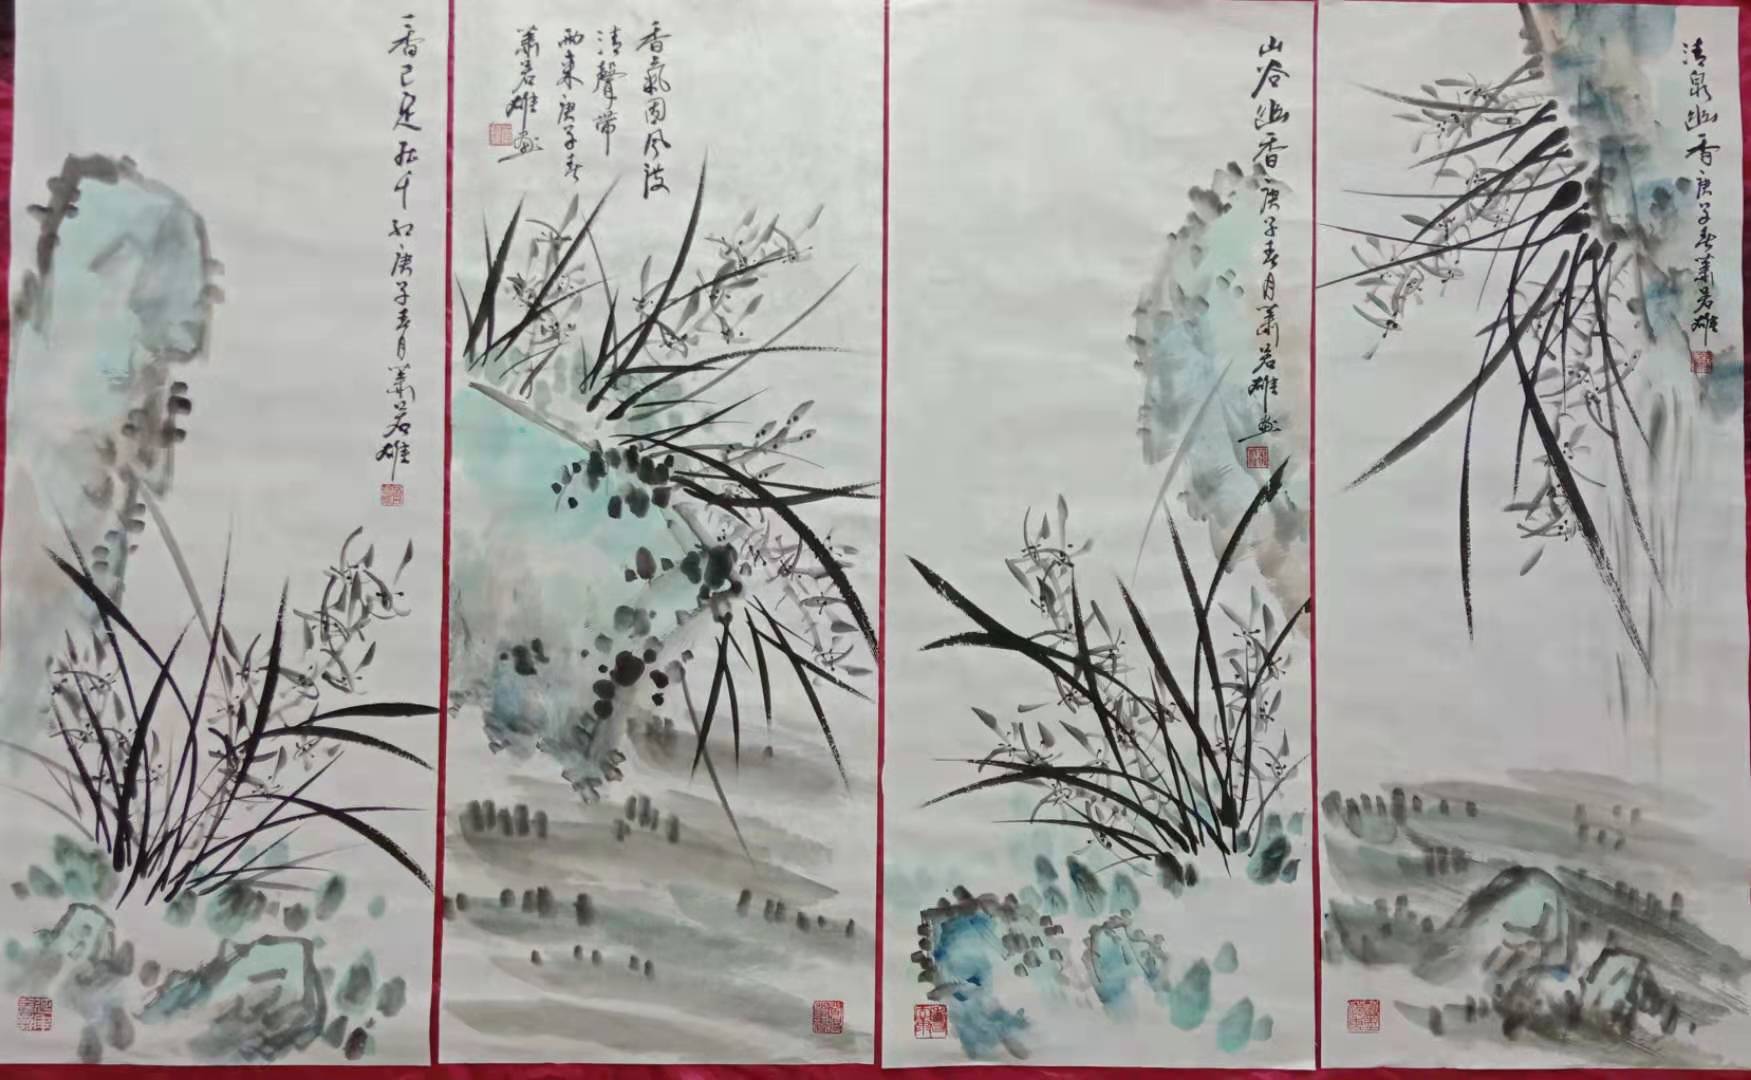 清泉幽香庚子春萧若雄
山谷幽香庚子春月萧若雄画
香气因风泼
清声带
雨来庚子春
萧若雄画
一香已足压千红庚子春月萧若雄